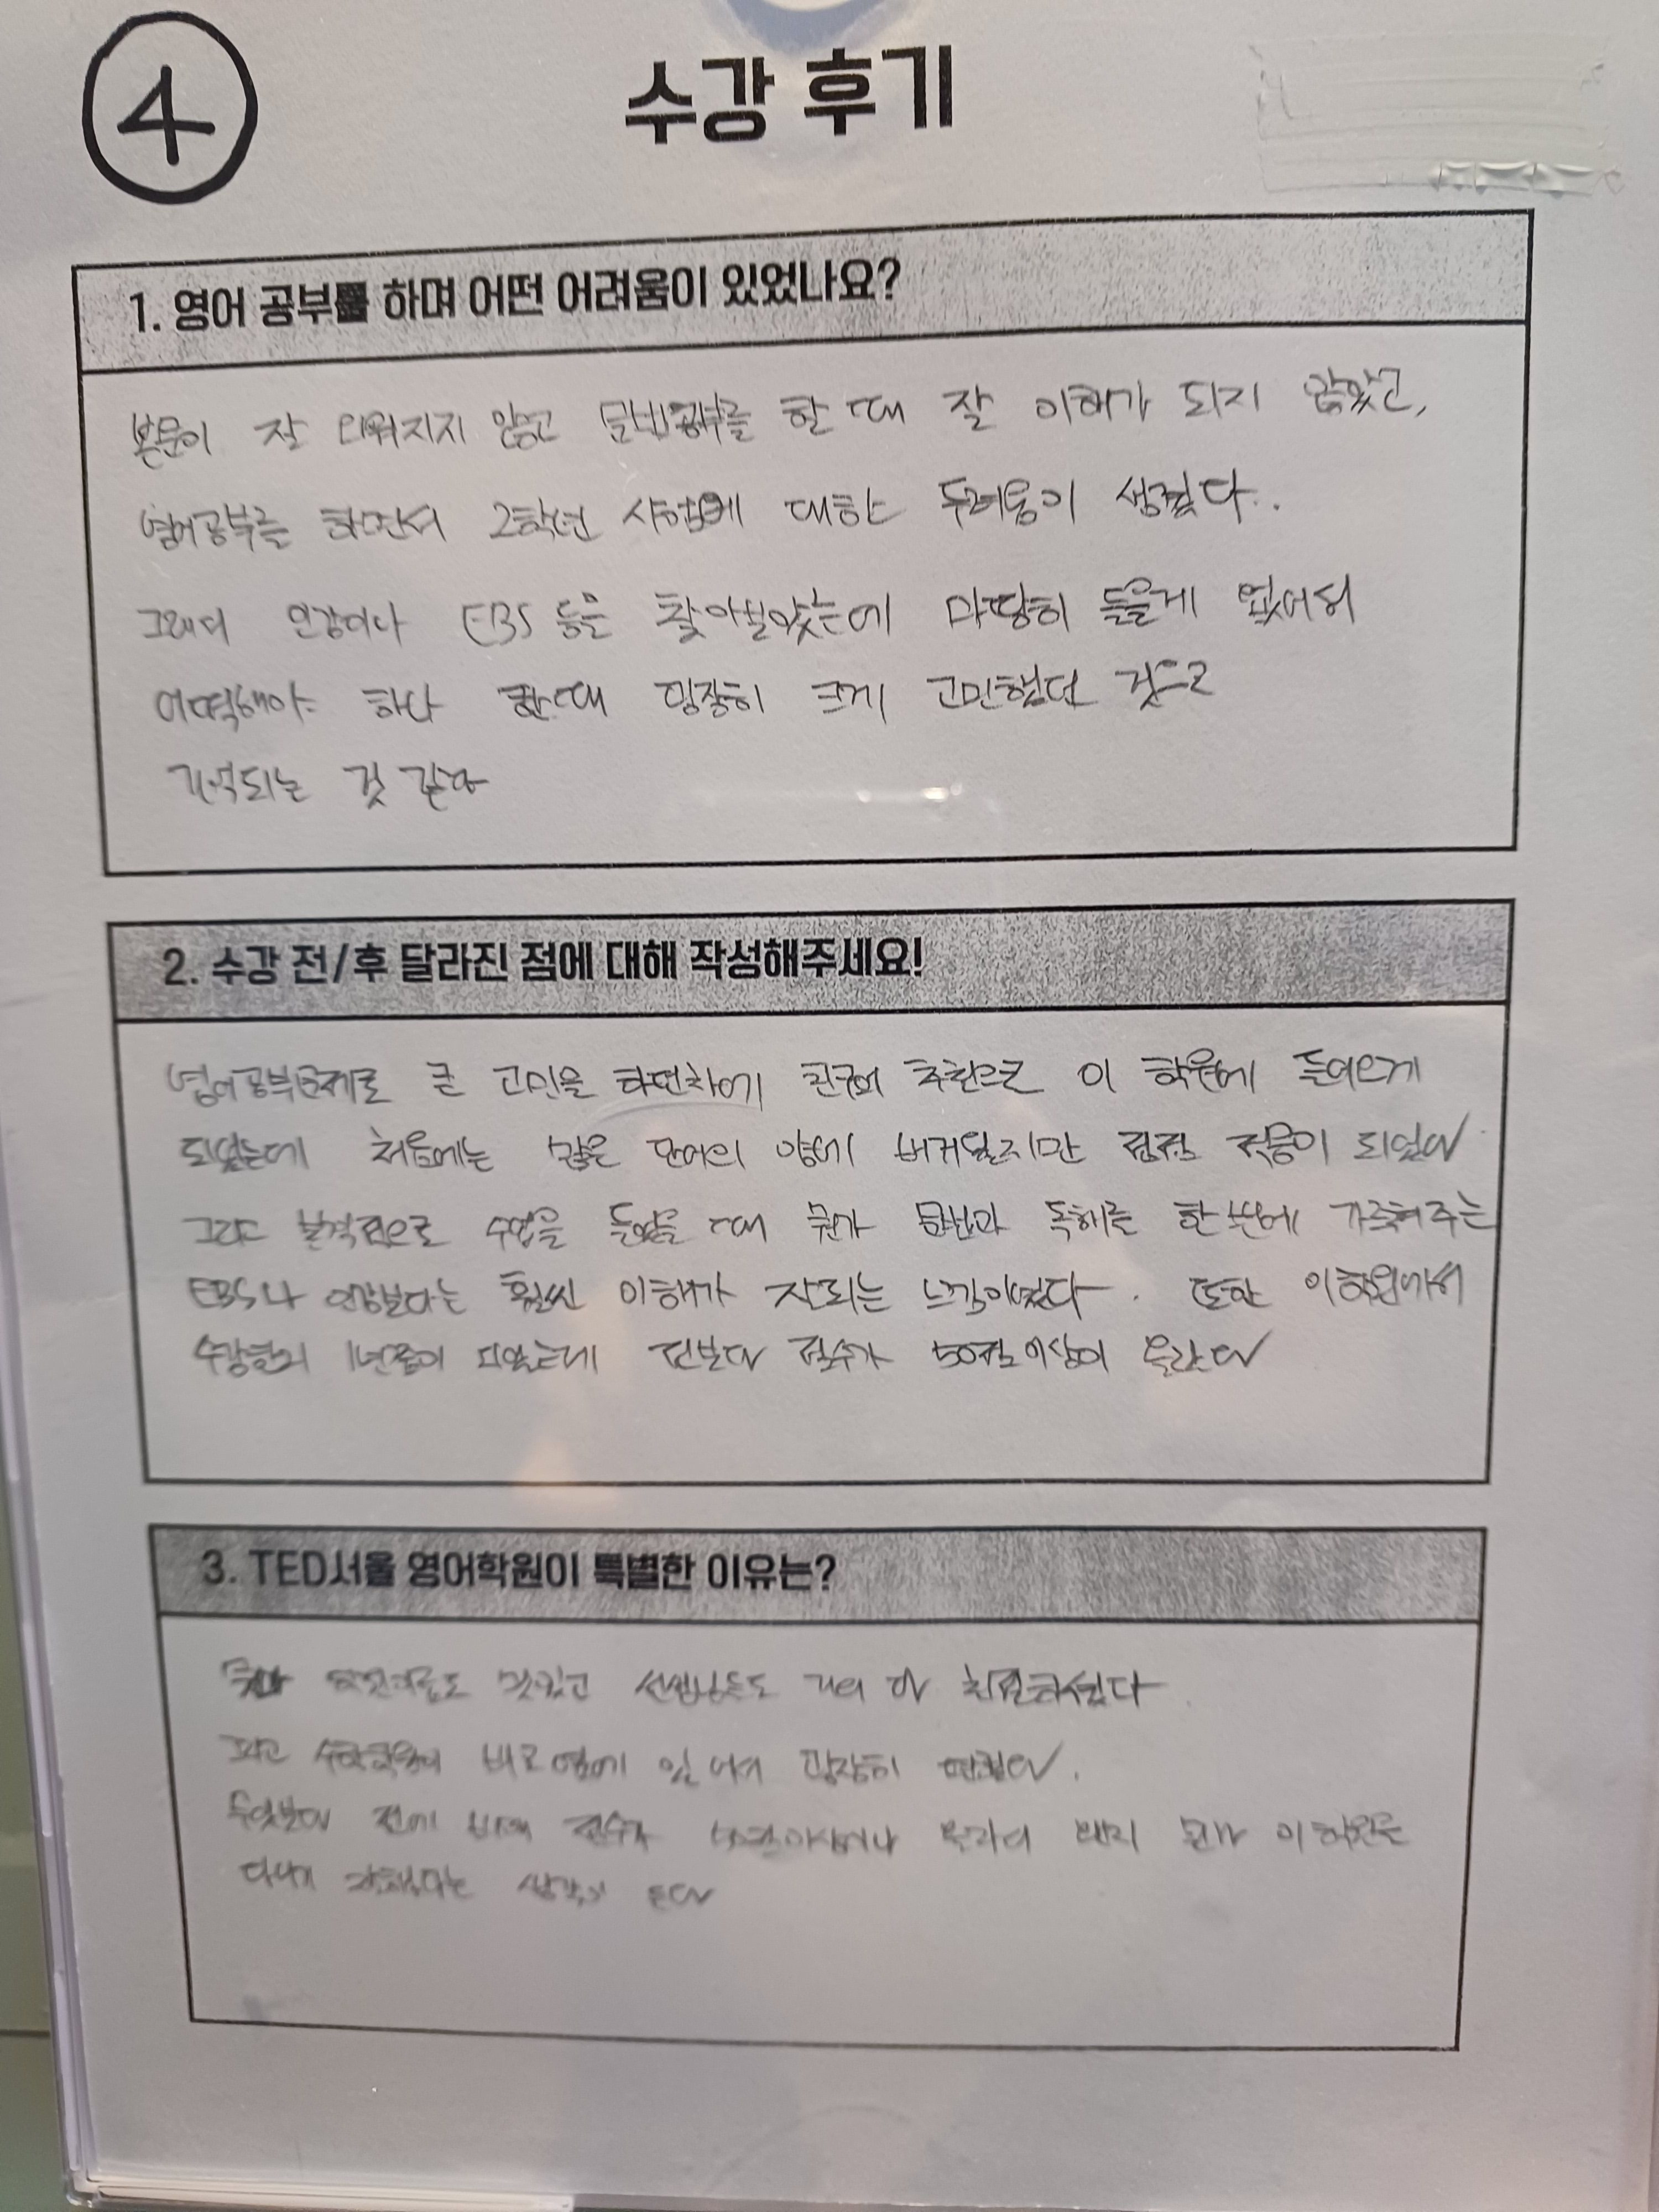 ④
수강 후기
1. 영어 공부를 하며 어떤 어려움이 있었나요?
본문이 잘 외워지지 않고 문법공부를 할 때 잘 이해가 되지 않았고,
영어공부를 하면서 2학년 시험에 대한 두려움이 생겼다..
그래서 인강이나 EBS 등을 찾아보았는데 마땅히 들을게 없어서
어떡해야 하나 할때 굉장히 크게 고민했던 것으로
기억되는 것 같다
2. 수강 전/후 달라진 점에 대해 작성해주세요!
영어공부문제로 큰 고민을 하던차에 친구의 추천으로 이 학원에 들어오게
되었는데 처음에는 많은 단어의 양에 버거웠지만 점점 적응이 되었다
그리고 본격적으로 수업을 들었을 때 뭔가 문법과 독해를 한번에 가르쳐주는
EBS나 인강보다는 훨씬 이해가 잘되는 느낌이었다. 또한 이학원에서
수강한지 1년쯤이 되었는데 전보다 점수가 50점이상이 올랐다
3. TED서울 영어학원이 특별한 이유는?
맛있고 선생님들도 거의 다 친절하셨다
그리고 수학학원이 바로 옆에 있어서 굉장히 편했다.
무엇보다 전에 비해 점수가 50점이상이나 올라서 뭔가 이 학원을
다니기 잘했다는 생각이 든다